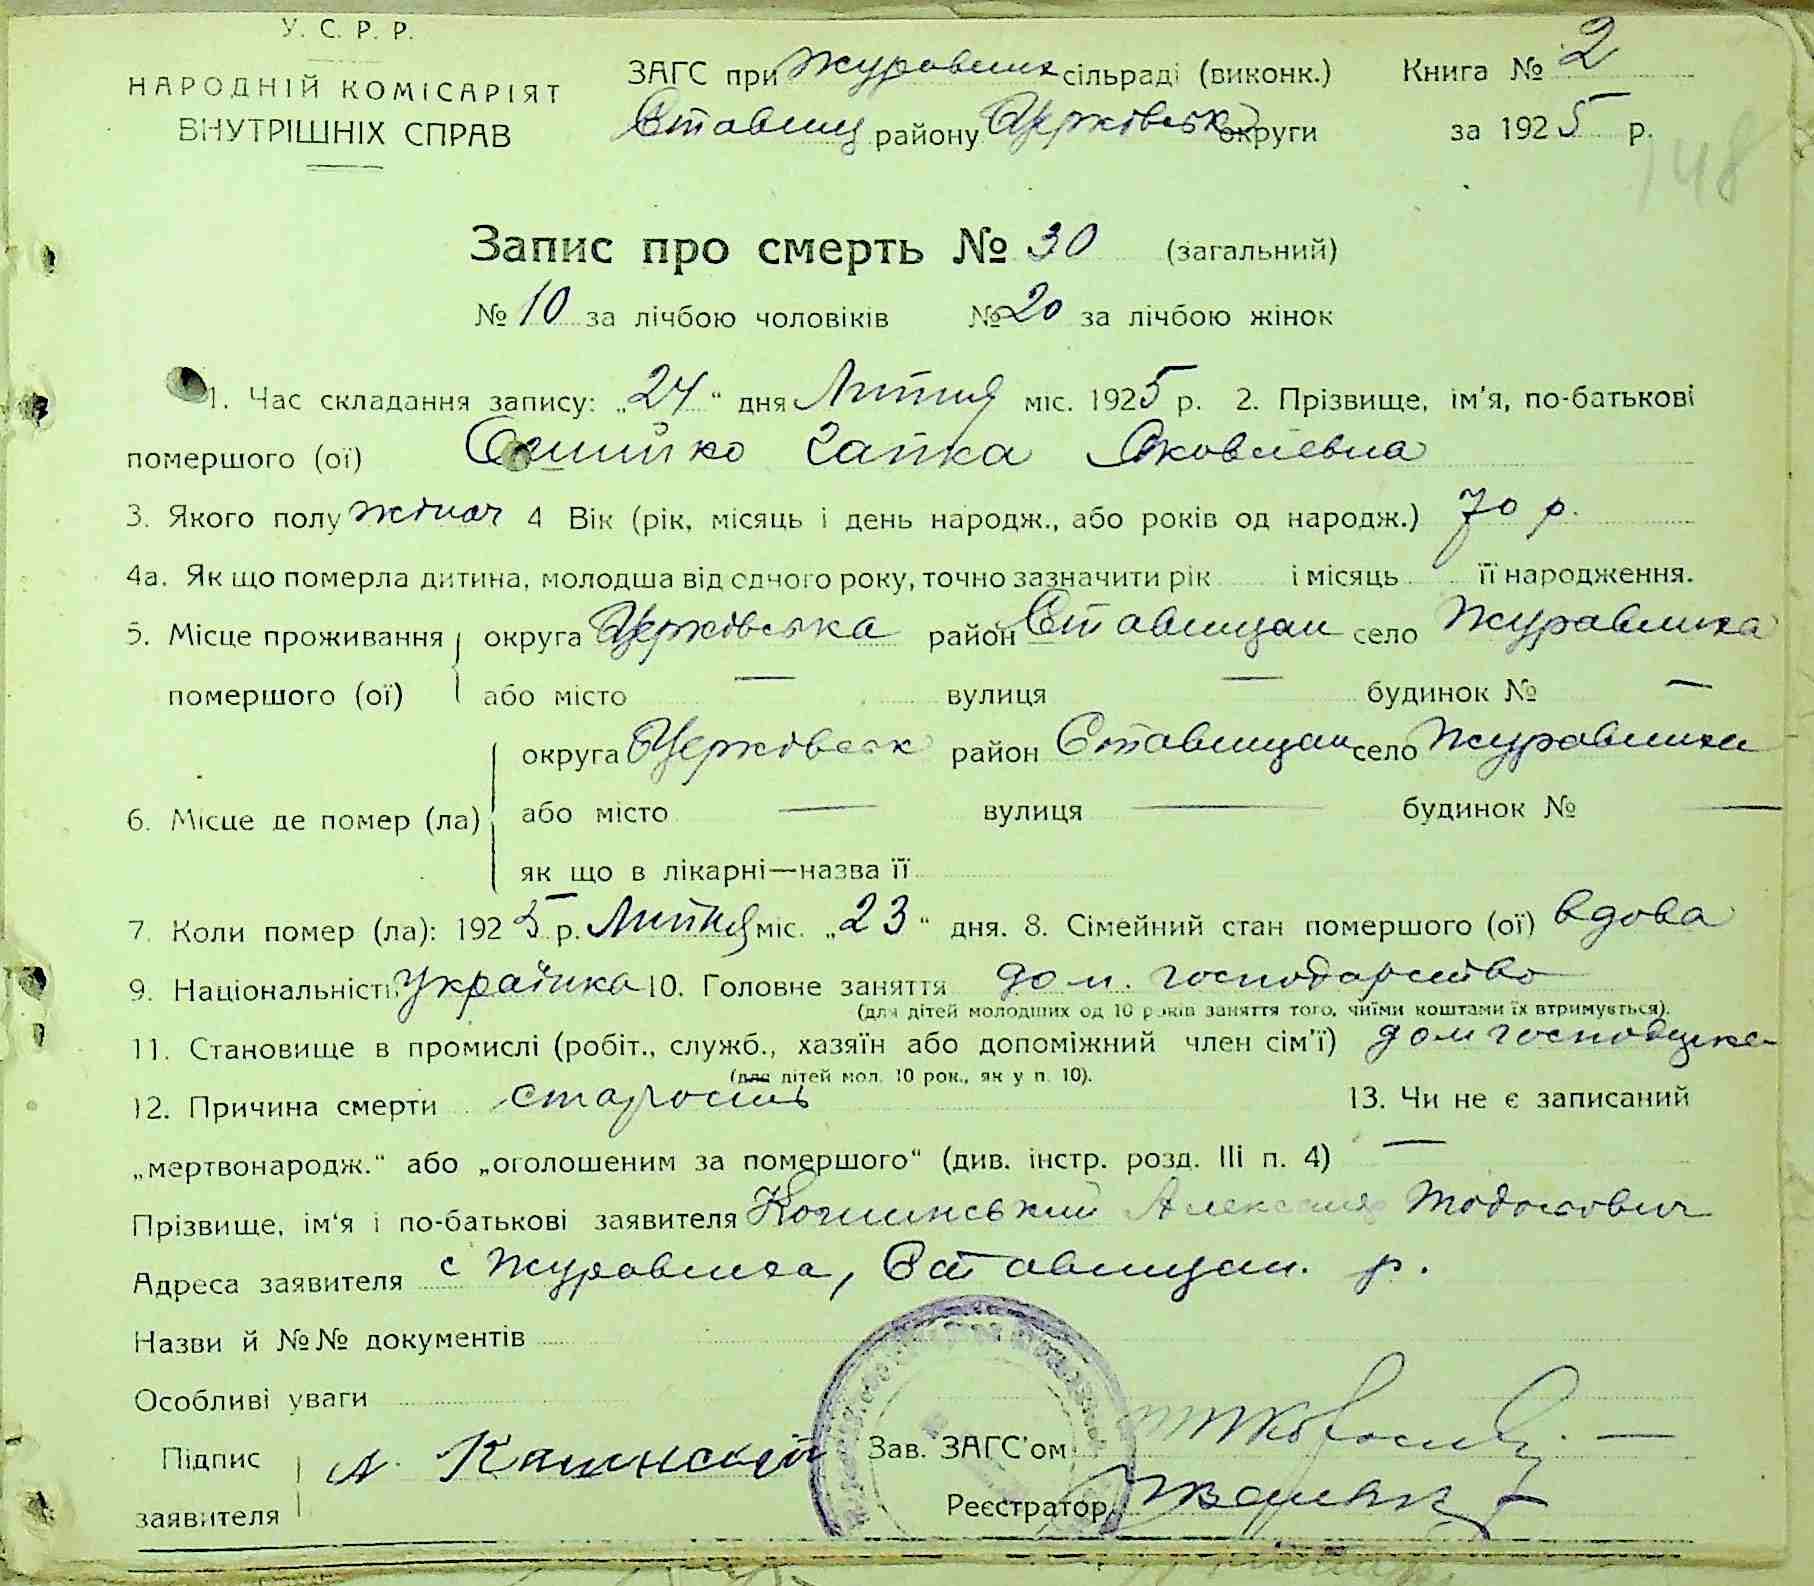 У. С. Р. Р.
НАРОДНІЙ КОМІСАРІЯТ
ВНУТРІШНІХ СПРАВ
ЗАГС при Журавлих сільраді (виконк.) Книга № 2
Ставищ району Церківськ округи за 1925 р.
148
Запис про смерть № 30 (загальний)
№ 10 за лічбою чоловіків № 20 за лічбою жінок
1. Час складання запису: „24" дня Липня міс. 1925 р. 2. Прізвище, ім'я, по-батькові
помершого (ої) Гапка Яковлевна
3. Якого полу жіноч 4 Вік (рік, місяць і день народж., або років од народж.) 70 р.
4а. Як що померла дитина, молодша від одного року, точно зазначити рік і місяць її народження.
5. Місце проживання округа Церківська район Ставищан село Журавлиха
помершого (ої) або місто — вулиця — будинок № —
округа Церківськ район Ставищан село Журавлиха
6. Місце де помер (ла) або місто — вулиця — будинок № —
як що в лікарні—назва її
7. Коли помер (ла): 1925 р. Липня міс. „23" дня. 8. Сімейний стан помершого (ої) вдова
9. Національність Українка 10. Головне заняття дом. господарство
(для дітей молодших од 10 років заняття того, чиїми коштами їх втримується).
11. Становище в промислі (робіт., служб., хазяїн або допоміжний член сім'ї)
(для дітей мол. 10 рок., як у п. 10).
12. Причина смерти старость 13. Чи не є записаний
„мертвонародж." або „оголошеним за помершого" (див. інстр. розд. III п. 4) —
Прізвище, ім'я і по-батькові заявителя Тодосович
Адреса заявителя с Журавлиха, Ставищан. р.
Назви й №№ документів
Особливі уваги
Підпис
заявителя
Зав. ЗАГС'ом
Реєстратор